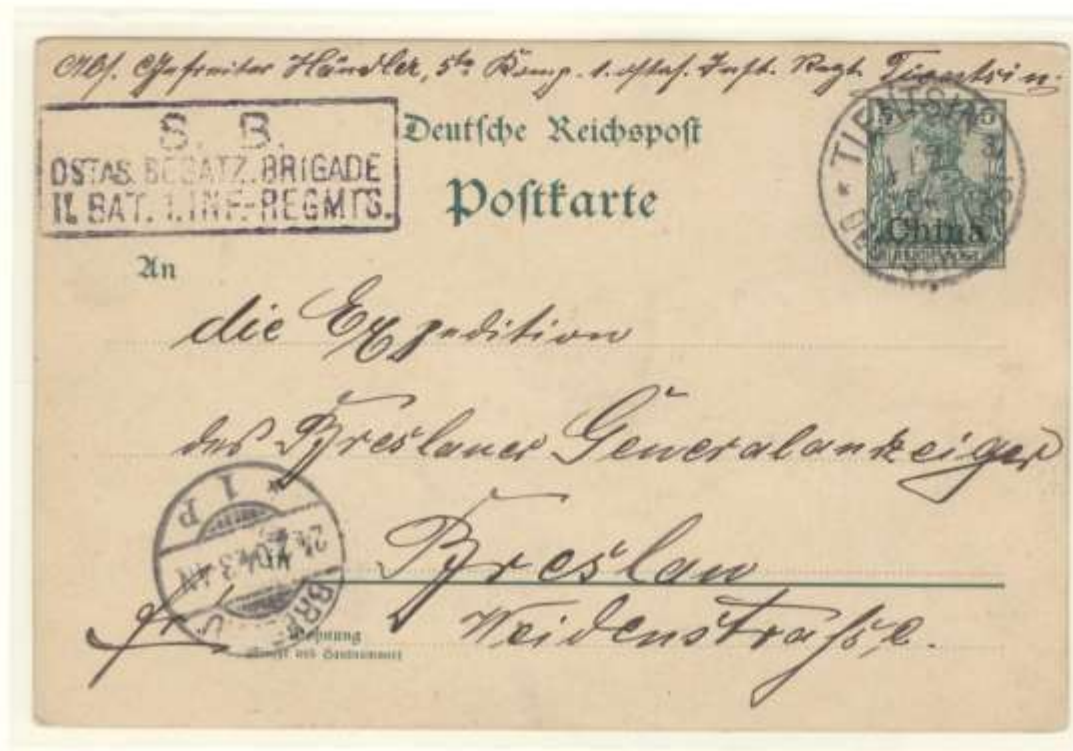 Abs. Gefreiter Händler, 5te Komp. 1. ostas. Inft. Regt. Tientsin.
S. B.
OSTAS. BESATZ. BRIGADE
II. BAT. 1. INF.-REGMTS.
Deutsche Reichspost
Postkarte
TIENTSIN
China
REICHSPOST
An
die Expedition
des Breslauer Generalanzeiger
Breslau
Weidenstraße.
BRESLAU
1 p
Wohnung